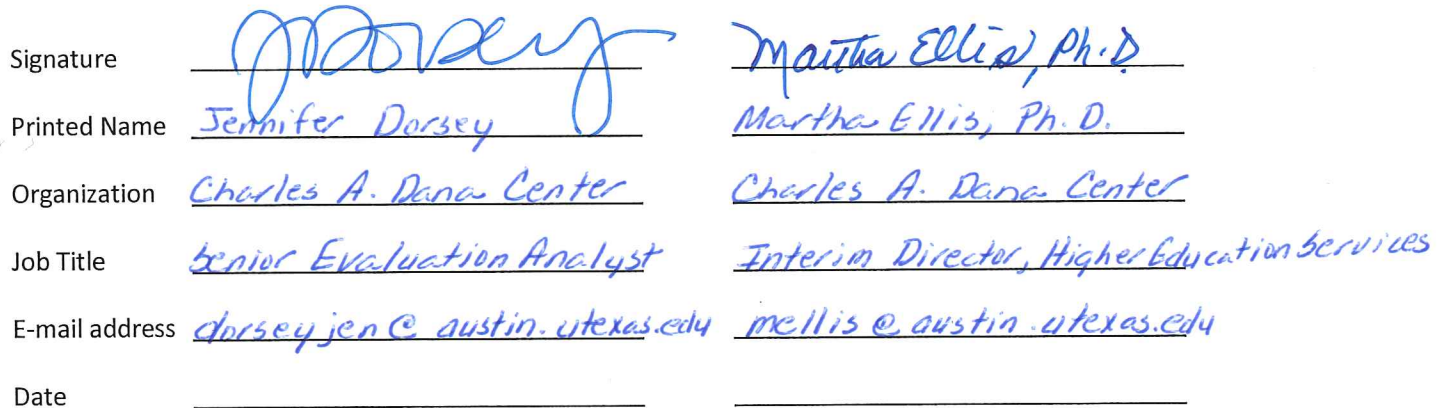 Signature JDorsey Martha Ellis, Ph.D.
Printed Name Jennifer Dorsey Martha Ellis, Ph.D.
Organization Charles A. Dana Center Charles A. Dana Center
Job Title Senior Evaluation Analyst Interim Director, Higher Education Services
E-mail address dorseyjen@austin.utexas.edu mellis@austin.utexas.edu
Date